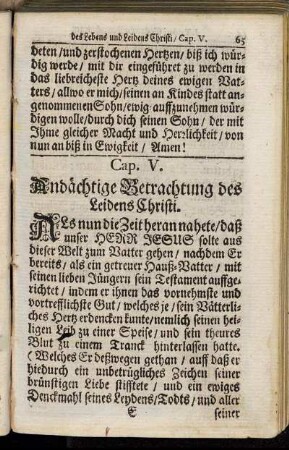 des Lebens und Leidens Christi / Cap. V. 65
deten / und zerstochenen Hertzen / biß ich wür-
dig werde / mit dir eingeführet zu werden in
das liebreicheste Hertz deines ewigen Vat-
ters / allwo er mich / seinen an Kindes statt an-
genommenen Sohn / ewig auffzunehmen wür-
digen wolle / durch dich seinen Sohn / der mit
Ihme gleicher Macht und Herzlichkeit / von
nun an biß in Ewigkeit / Amen!
Cap. V.
Andächtige Betrachtung des
Leidens Christi.
ALs nun die Zeit heran nahete / daß
unser HERR JESUS solte aus
dieser Welt zum Vatter gehen / nachdem Er
bereits / als ein getreuer Hauß-Vatter / mit
seinen lieben Jüngern sein Testament auffge-
richtet / indem er ihnen das vornehmste und
vortrefflichste Gut / welches je / sein Vätterli-
ches Hertz erdencken kunte / nemlich seinen hei-
ligen Leib zu einer Speise / und sein theures
Blut zu einem Tranck hinterlassen hatte.
(Welches Er deßwegen gethan / auff daß er
hiedurch ein unbetrügliches Zeichen seiner
brünstigen Liebe stifftete / und ein ewiges
Denckmahl seines Leydens / Todts / und aller
E seiner